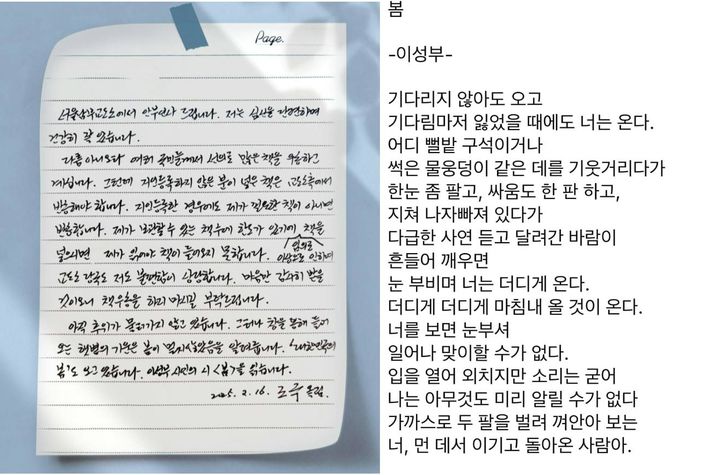 Page.
서울남부교도소에서 안부인사 드립니다. 저는 심신을 단련하며
건강히 잘 있습니다.
다름 아니오라 여러 국민들께서 선의로 많은 책을 우송하고
계십니다. 그런데 지인등록하지 않은 분이 넣은 책은 교도소측에서
반송해야 합니다. 지인등록한 경우에도 제가 필요한 책이 아니면
반송합니다. 제가 보관할 수 있는 책수에 한도가 있기에 책을
넣으면 제가 읽어야 책이 들어오지 못합니다. 임의로
교도소 당국도 저도 불편함이 상당합니다. 마음만 감사히 받을
것이오니 책우송을 하지 마시길 부탁드립니다.
아직 추위가 물러가지 않고 있습니다. 그러나 창을 통해 들어
오는 햇볕의 기운은 봄이 멀지 않았음을 알려줍니다. '대한민국의
봄'도 오고 있습니다. 이성부 시인의 시 <봄>을 읽습니다.
2025. 2. 16. 조국 올림
봄
-이성부-
기다리지 않아도 오고
기다림마저 잃었을 때에도 너는 온다.
어디 뻘밭 구석이거나
썩은 물웅덩이 같은 데를 기웃거리다가
한눈 좀 팔고, 싸움도 한 판 하고,
지쳐 나자빠져 있다가
다급한 사연 듣고 달려간 바람이
흔들어 깨우면
눈 부비며 너는 더디게 온다.
더디게 더디게 마침내 올 것이 온다.
너를 보면 눈부셔
일어나 맞이할 수가 없다.
입을 열어 외치지만 소리는 굳어
나는 아무것도 미리 알릴 수가 없다
가까스로 두 팔을 벌려 껴안아 보는
너, 먼 데서 이기고 돌아온 사람아.